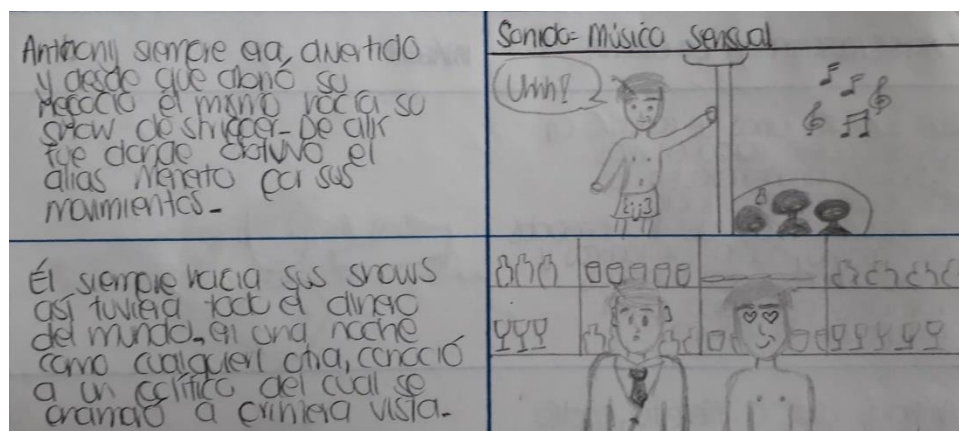 Anthony siempre era, divertido
y desde que abrió su
negocio él mismo hacía su
show de stripper. De allí
fue donde obtuvo el
alias Meneito por sus
movimientos.
Sonido= música sensual
Uhhh!
Él siempre hacia sus shows
así tuviera todo el dinero
del mundo, en una noche
como cualquier otra, conoció
a un político del cual se
enamoró a primera vista.